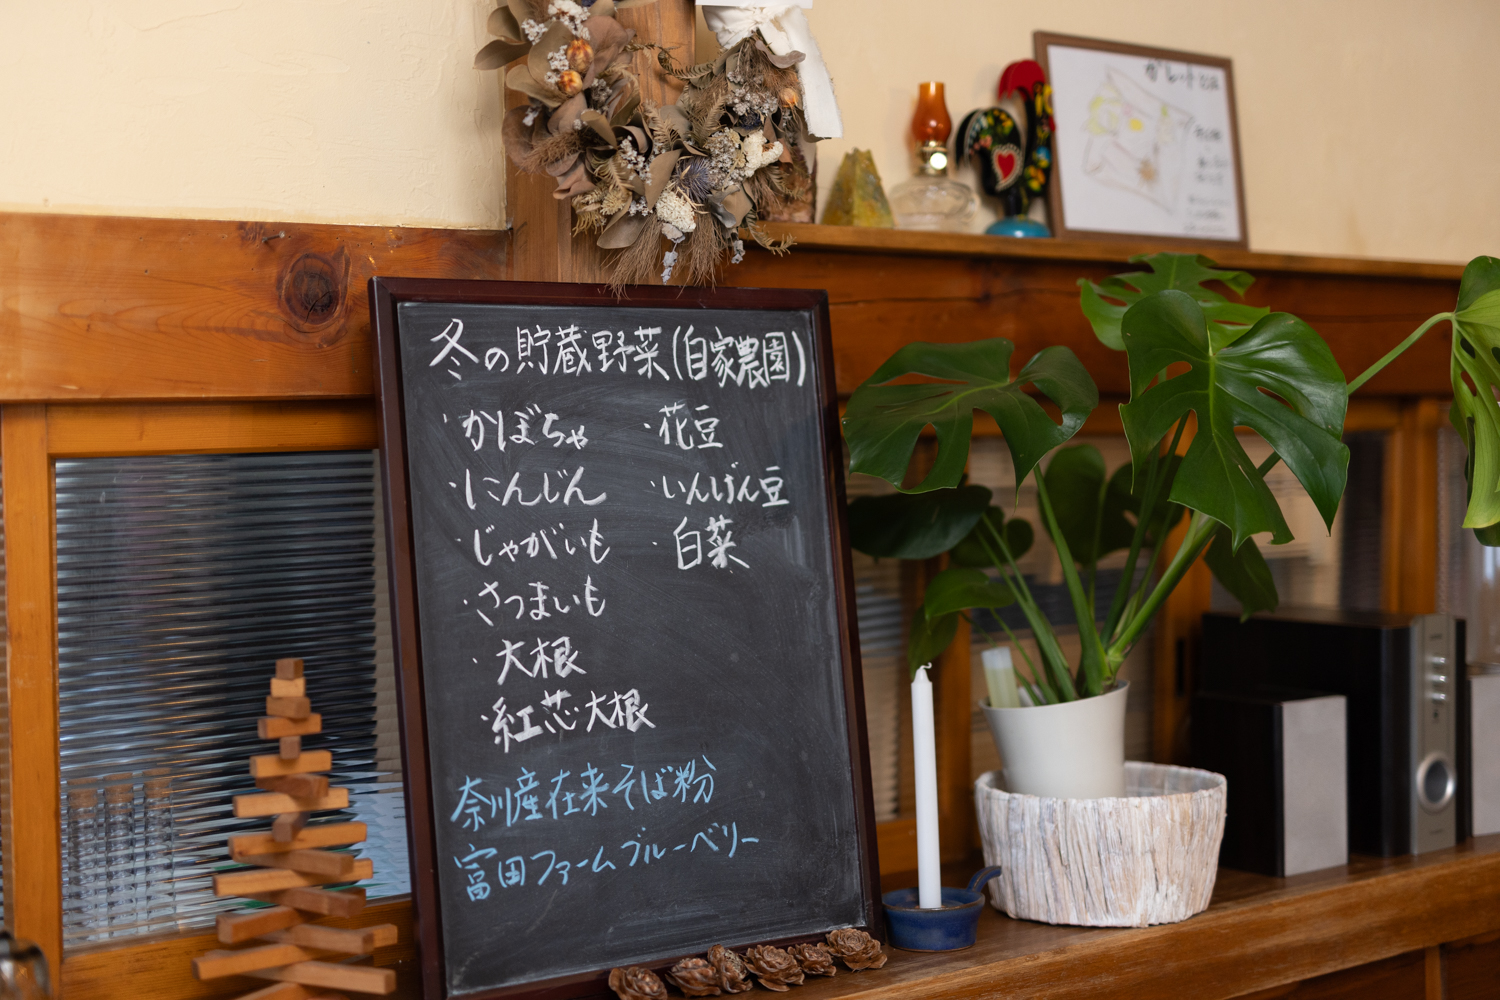 冬の貯蔵野菜(自家農園)
・かぼちゃ
・にんじん
・じゃがいも
・さつまいも
・大根
・紅芯大根
・花豆
・いんげん豆
・白菜
奈川産在来そば粉
富田ファームブルーベリー